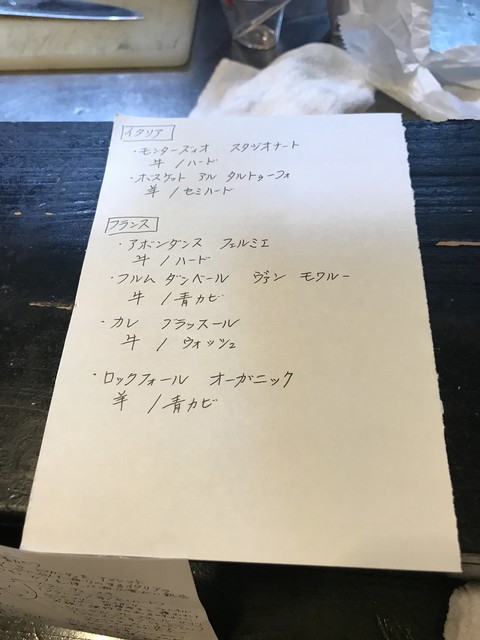 イタリア
・モンターズィオ スタジオナート
牛 /ハード
・ボスケット アル タルトゥーフォ
羊 /セミハード
フランス
・アボンダンス フェルミエ
牛 /ハード
・フルム ダンベール ヴァン モワルー
牛 /青カビ
・カレ ブラッスール
牛 / ウォッシュ
・ロックフォール オーガニック
羊 /青カビ